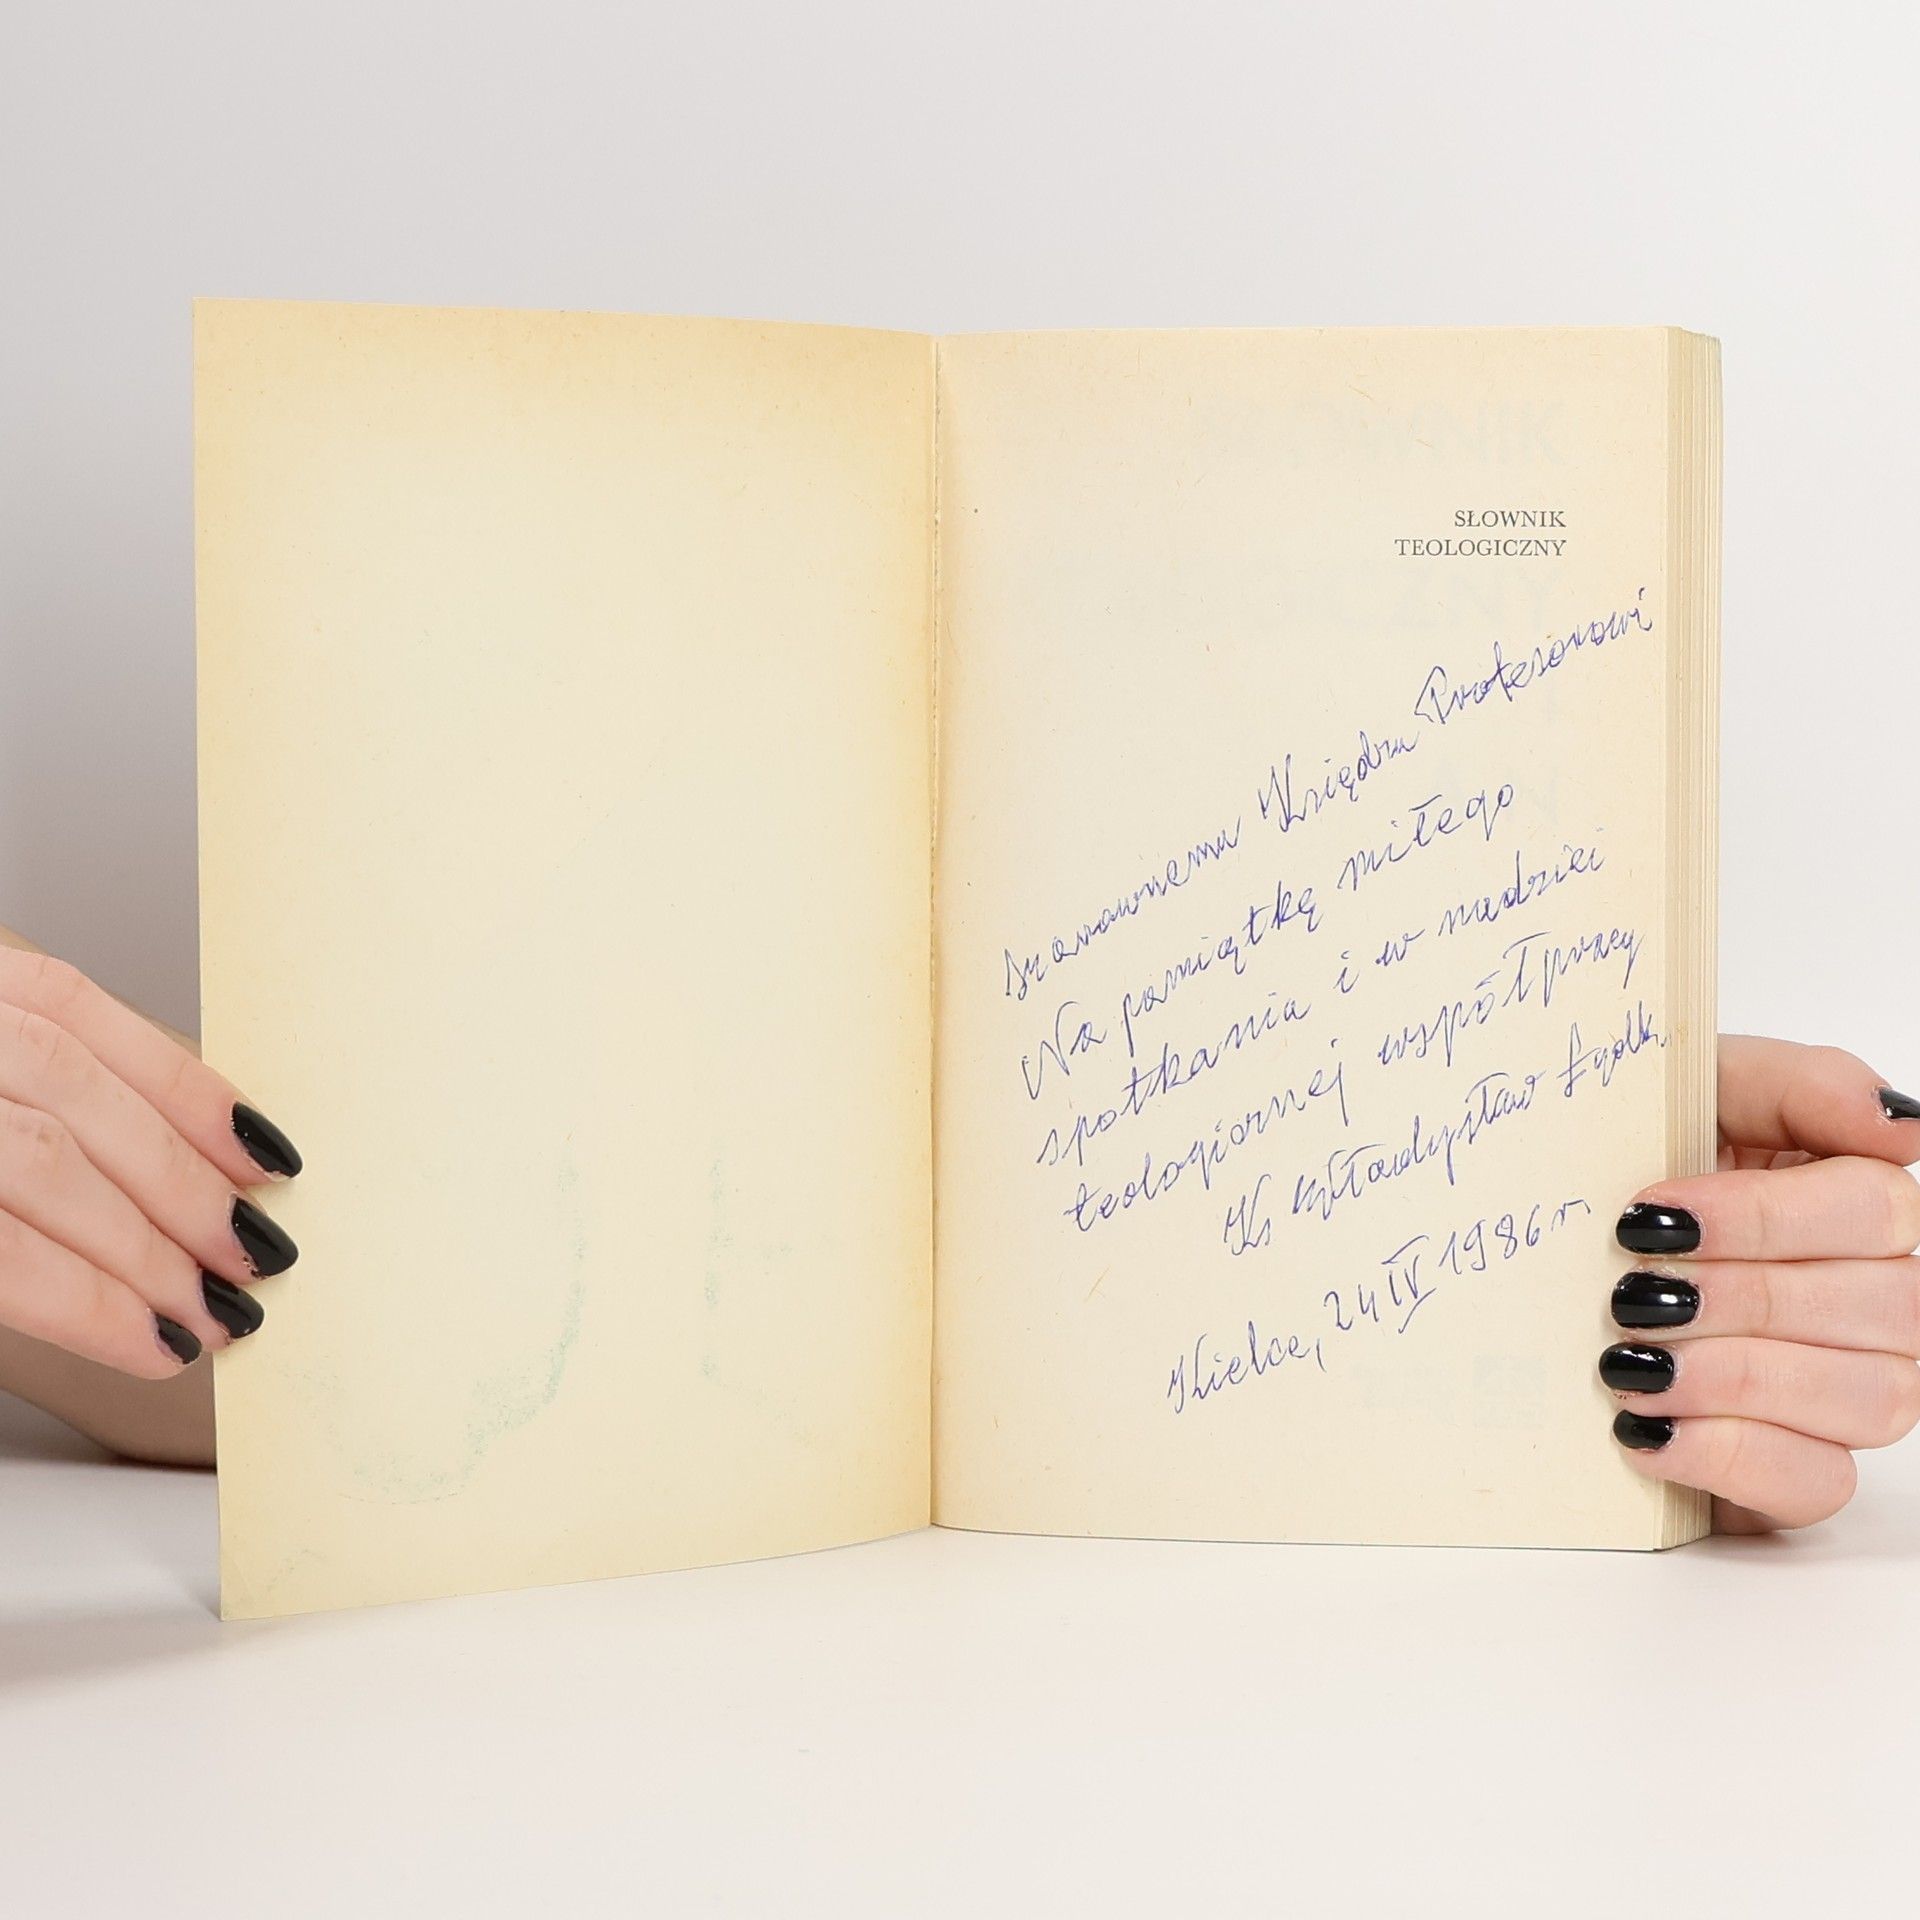 SŁOWNIK
TEOLOGICZNY
Szanownemu Księdzu Profesorowi
Na pamiątkę miłego
spotkania i w nadziei
teologicznej współpracy
Ks Władysław
Kielce, 24 IV 1986 r.